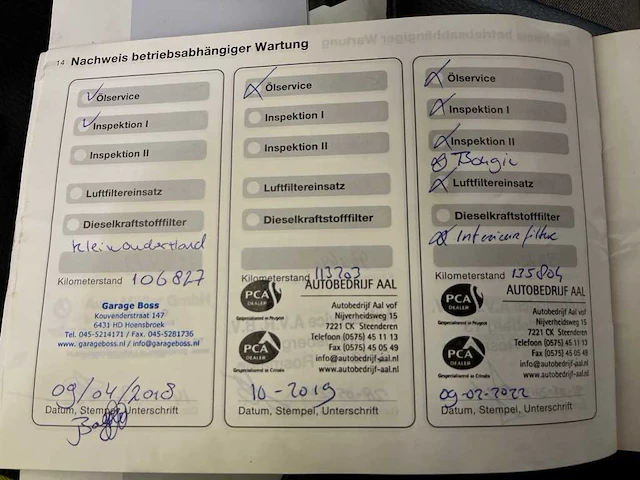 14 Nachweis betriebsabhängiger Wartung
Ölservice
Inspektion I
Inspektion II
Luftfiltereinsatz
Dieselkraftstofffilter
klein onderhoud
Kilometerstand 106827
Garage Boss
Kouvenderstraat 147
6431 HD Hoensbroek
Tel. 045-5214171 / Fax. 045-5281736
www.garageboss.nl / info@garageboss.nl
09/04/2018
Datum, Stempel, Unterschrift
Ölservice
Inspektion I
Inspektion II
Luftfiltereinsatz
Dieselkraftstofffilter
Kilometerstand 113203
AUTOBEDRIJF AAL
PCA
DEALER
Gespecialiseerd in Peugeot
Autobedrijf Aal vof
Nijverheidsweg 15
7221 CK Steenderen
Telefoon (0575) 45 11 13
Fax (0575) 45 05 49
info@autobedrijf-aal.nl
www.autobedrijf-aal.nl
PCA
DEALER
Gespecialiseerd in Citroën
10-2019
Datum, Stempel, Unterschrift
Ölservice
Inspektion I
Inspektion II
Bougie
Luftfiltereinsatz
Dieselkraftstofffilter
Interieurfilter
Kilometerstand 135804
AUTOBEDRIJF AAL
PCA
DEALER
Gespecialiseerd in Peugeot
Autobedrijf Aal vof
Nijverheidsweg 15
7221 CK Steenderen
Telefoon (0575) 45 11 13
Fax (0575) 45 05 49
info@autobedrijf-aal.nl
www.autobedrijf-aal.nl
PCA
DEALER
Gespecialiseerd in Citroën
09-02-2022
Datum, Stempel, Unterschrift